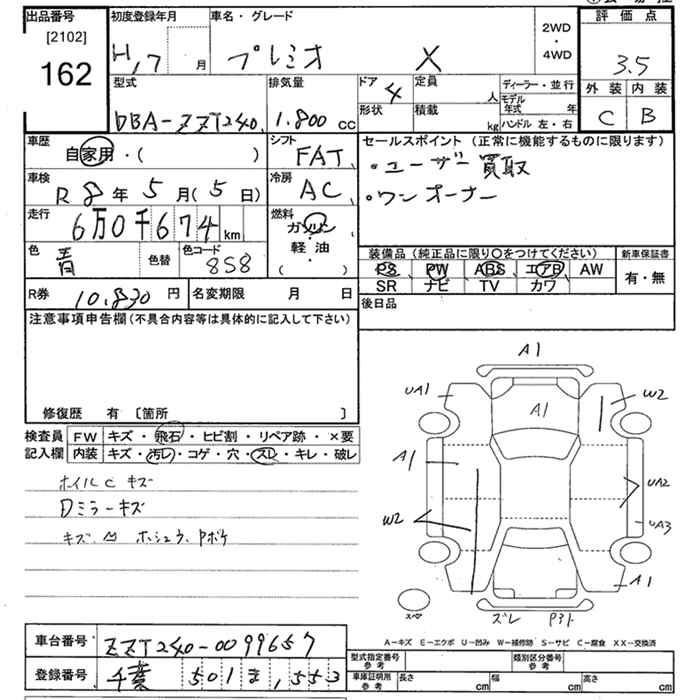 出品番号
[2102]
162
初度登録年月
H,17 月
車名・グレード
プレミオ X
2WD
・
4WD
評価点
3.5
外装 内装
C B
型式
DBA-ZZT240
排気量
1.800 cc
ドア 4
形状
定員 人
積載 kg
ディーラー・並行
モデル年式 年
ハンドル 左・右
車歴
自家用・( )
シフト
FAT
車検
R 8 年 5 月 ( 5 日)
冷房
AC
走行
6万0千674 km
燃料
ガソリン
軽・油
( )
色
青
色替
色コード
8S8
セールスポイント (正常に機能するものに限ります)
・ユーザー買取
・ワンオーナー
装備品 (純正品に限り○をつけてください)
新車保証書
PS PW ABS エアB AW
SR ナビ TV カワ
有・無
R券 10.830 円
名変期限 月 日
後日品
注意事項申告欄 (不具合内容等は具体的に記入して下さい)
修復歴 有 〔箇所 〕
検査員
記入欄
FW キズ・飛石・ヒビ割・リペア跡・×要
内装 キズ・汚レ・コゲ・穴・スレ・キレ・破レ
ホイルC キズ
Dミラーキズ
A1
UA1
A1
W2
A1
UA2
W2
UA3
A1
スペア
ズレ
A-キズ E-エクボ U-凹み W-補修跡 S-サビ C-腐食 XX-交換済
車台番号
ZZT240-0099657
登録番号
千葉 501 ま,553
型式指定番号
参考
類別区分番号
参考
車庫証明用
参考
長さ cm
幅 cm
高さ cm